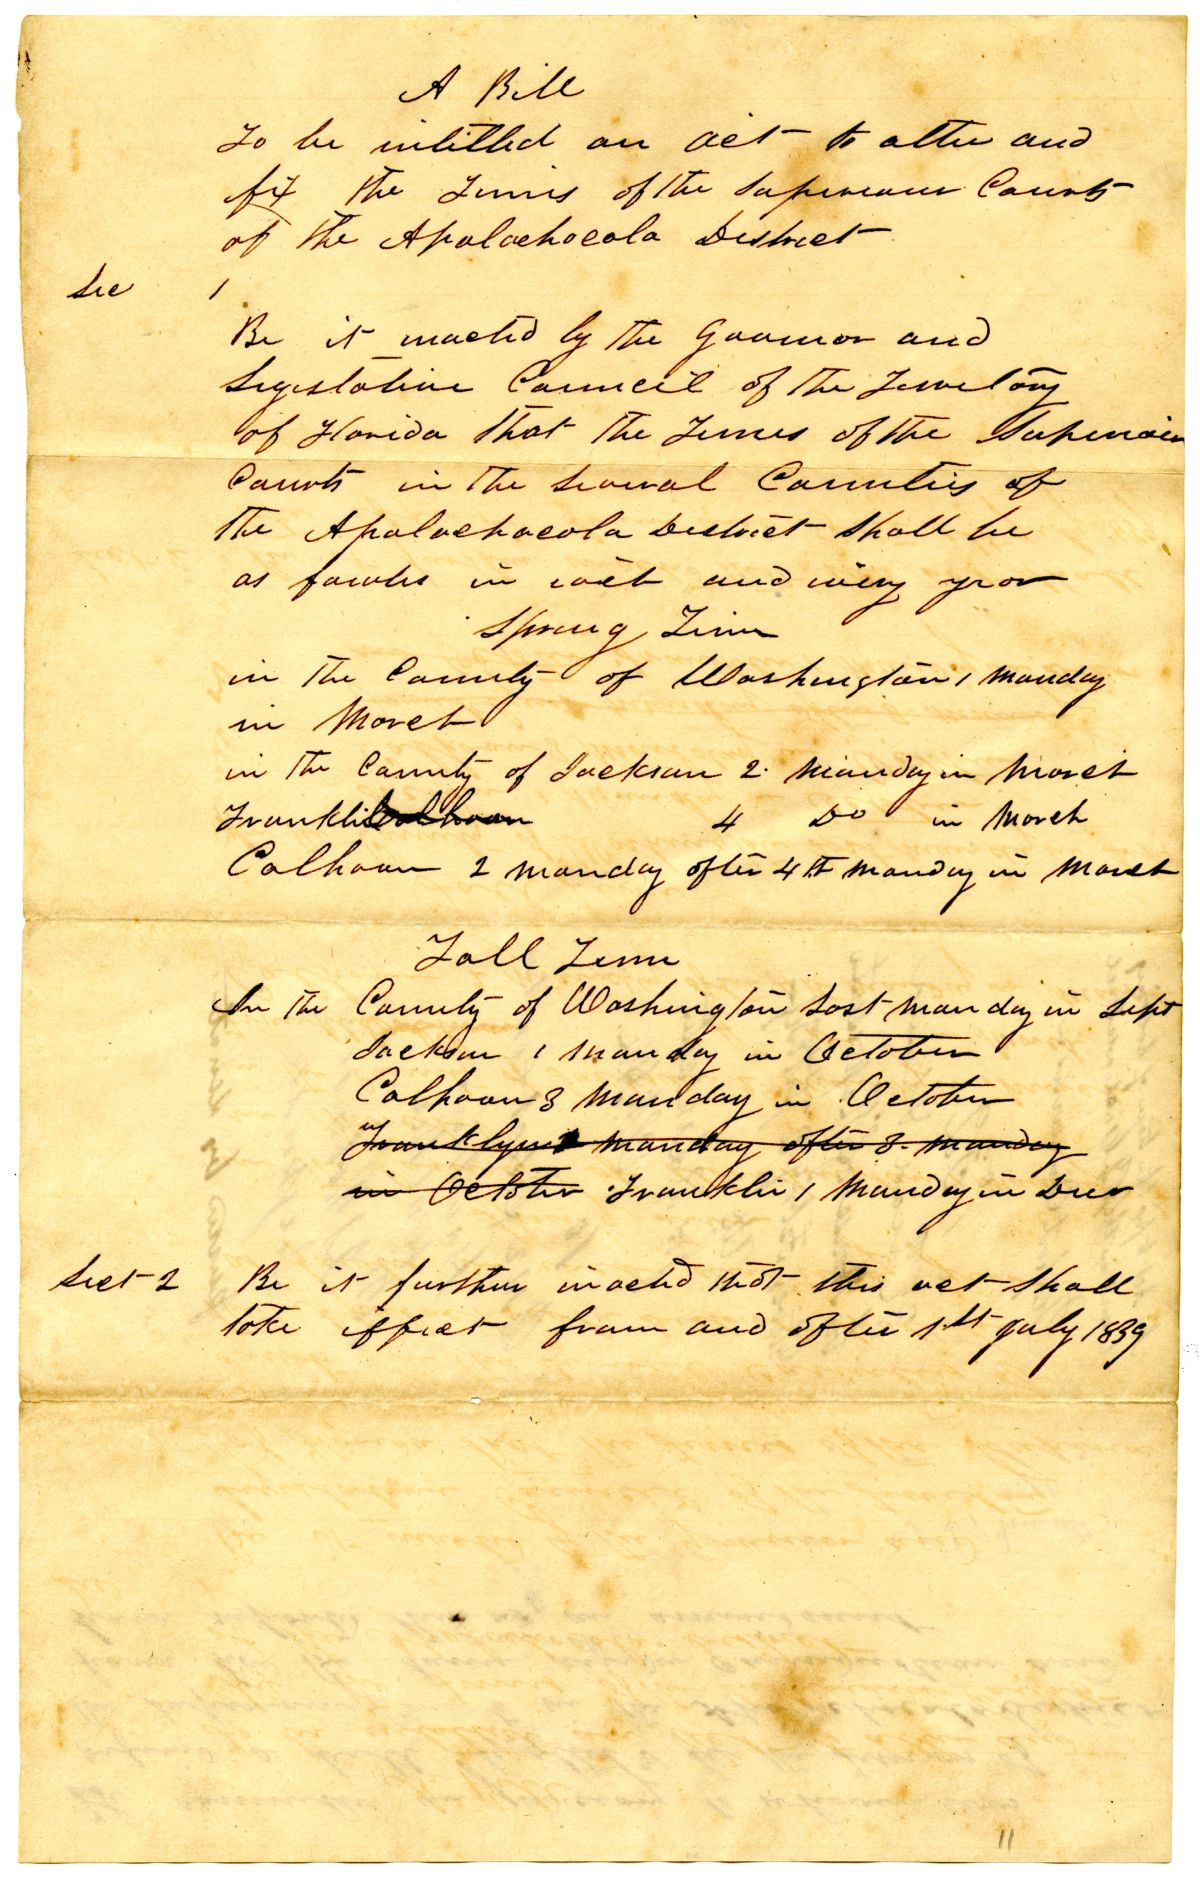 A Bill
To be intitled an act to alter and
fix the Terms of the Superiour Courts
of the Apalachocola District
Sec 1
Be it enacted by the Governor and
Legislative Council of the Terretory
of Florida that the Terms of the Superior
Courts in the several Counties of
the Apalachocola District shall be
as fowls in each and every year
Spring Term
in the County of Washington 1 Monday
in March
in the County of Jackson 2 Monday in March
Franklin Calhoun 4 Do in March
Calhoun 2 Monday after 4th Monday in March
Fall Term
In the County of Washington Last Monday in Sept
Jackson 1 Monday in October
Calhoun 3 Monday in October
Franklyn 2 Monday after 3. Monday
in October Franklin 1 Monday in Decr
Sect 2 Be it further enacted that this act shall
take effect from and after 1st July 1839
11